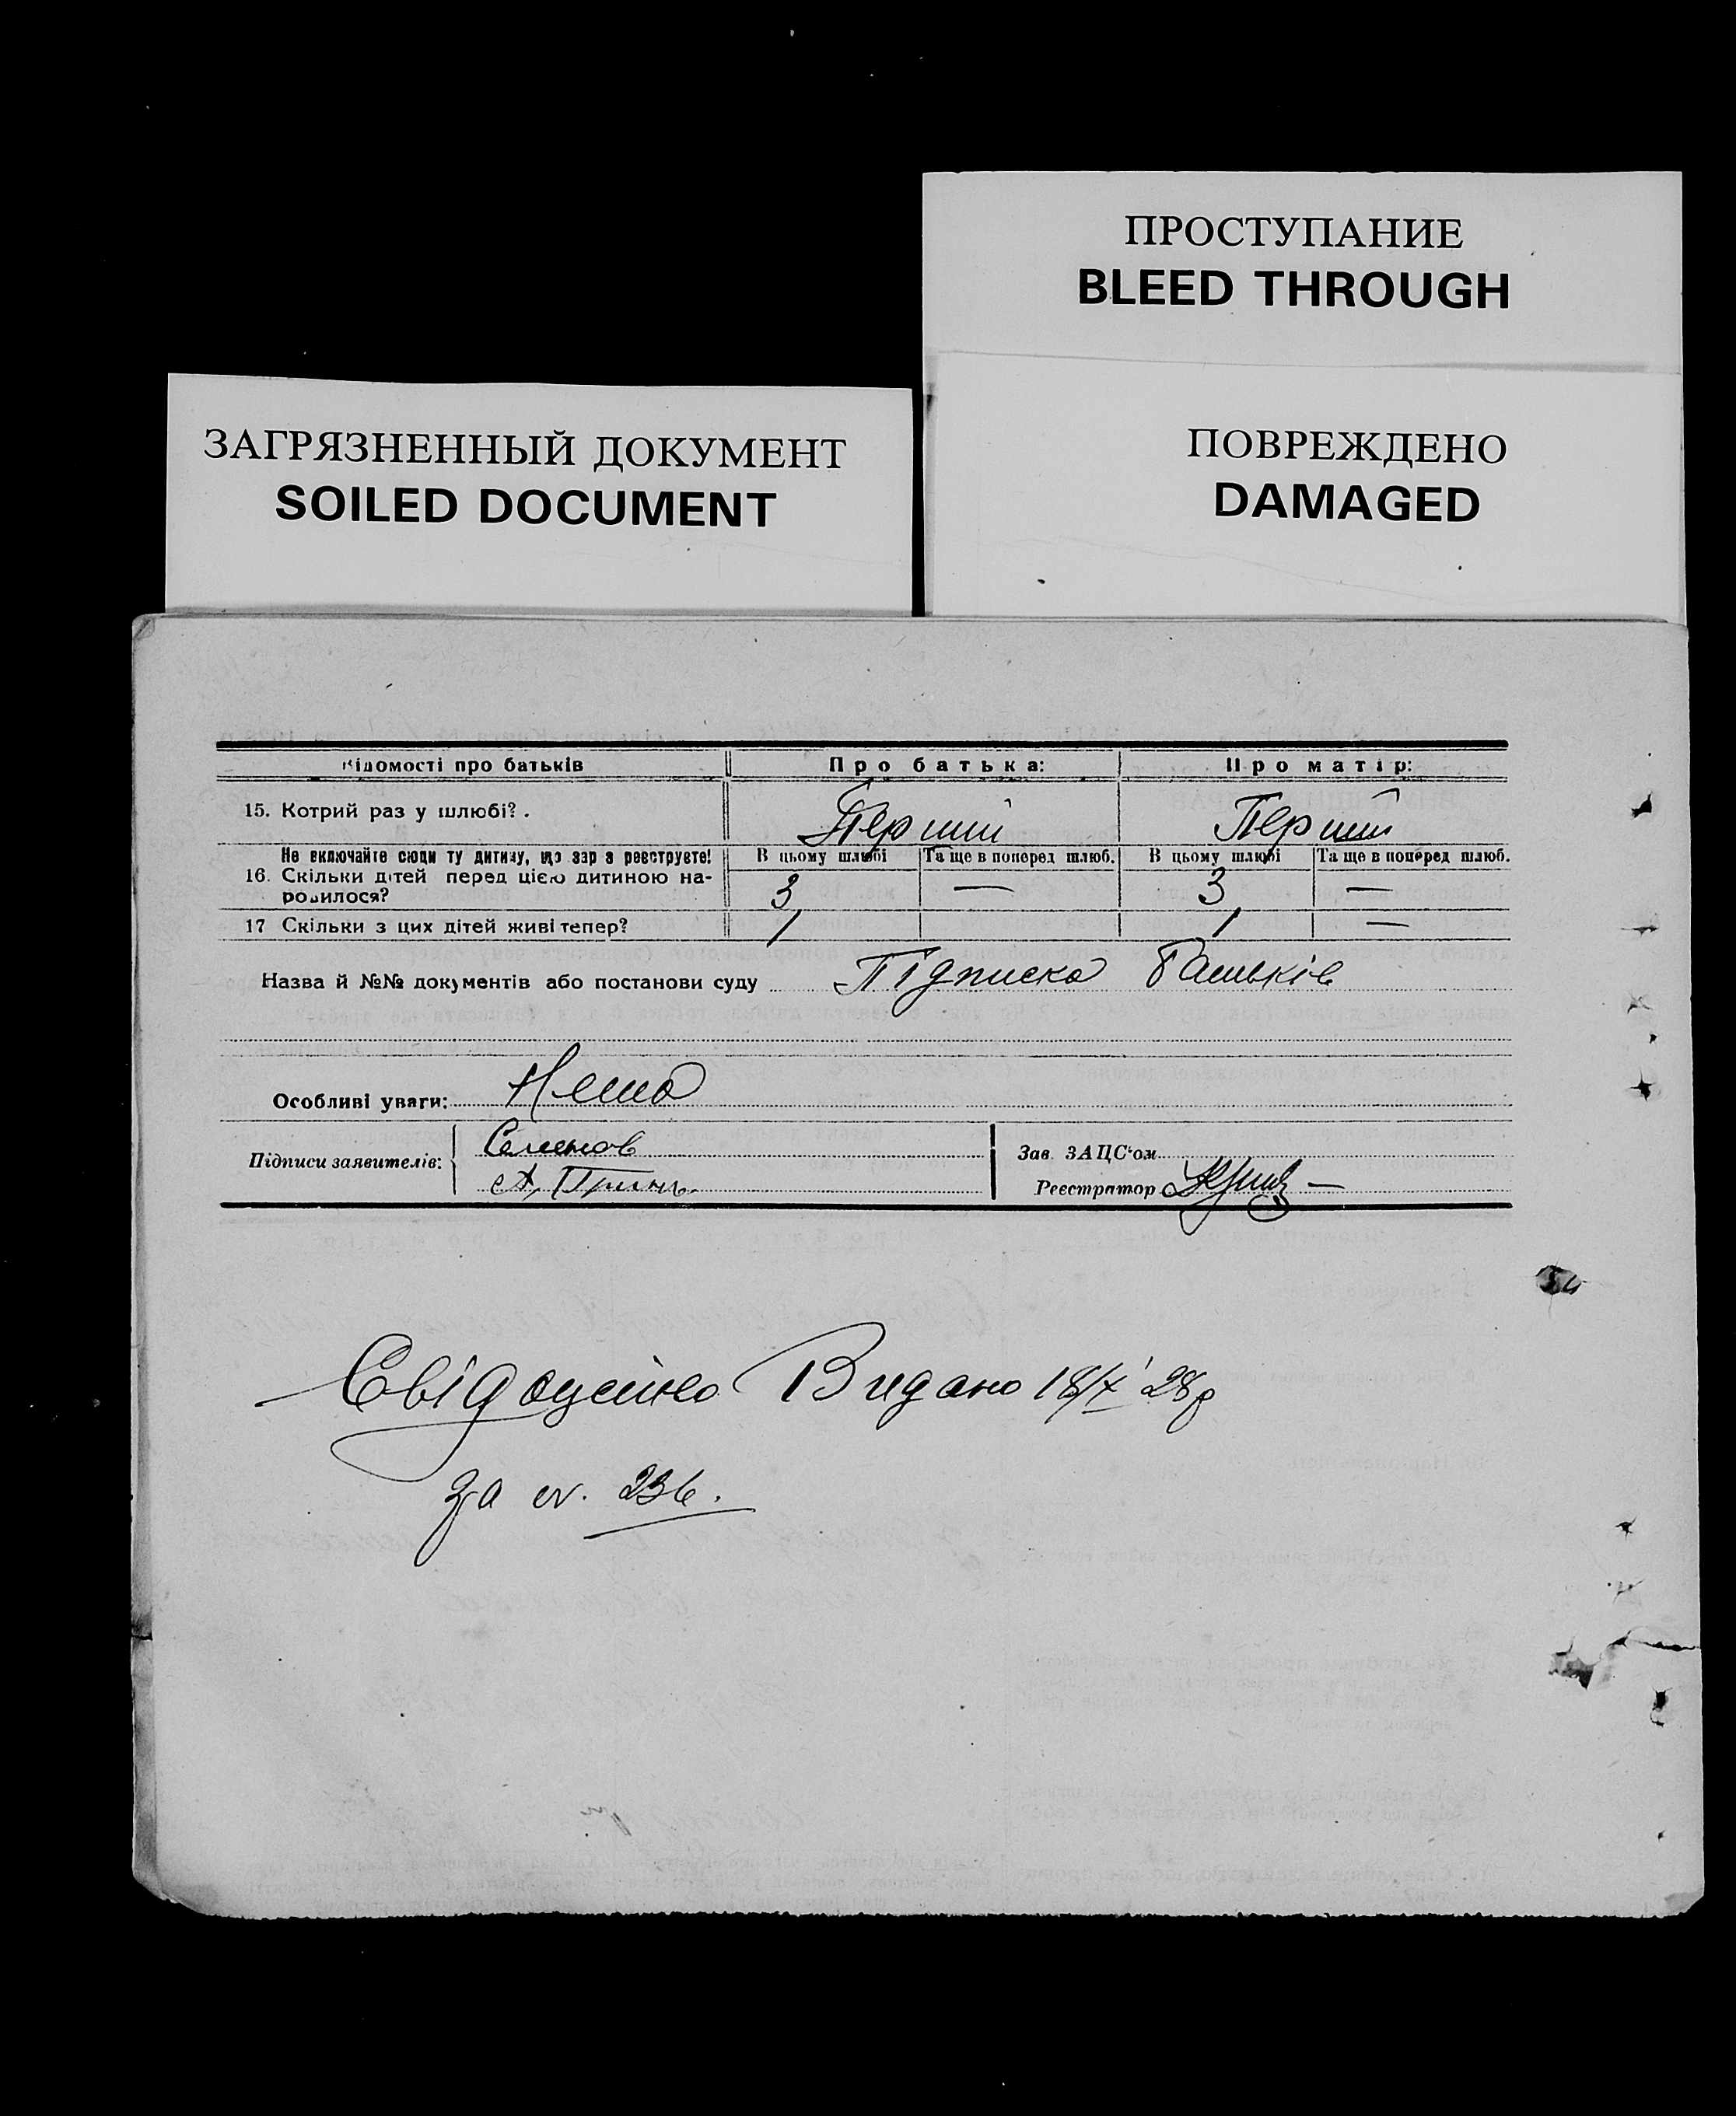 ПРОСТУПАНИЕ
BLEED THROUGH
ЗАГРЯЗНЕННЫЙ ДОКУМЕНТ
SOILED DOCUMENT
ПОВРЕЖДЕНО
DAMAGED
Відомості про батьків Про батька: Про матір:
15. Котрий раз у шлюбі?. Перший Перший
Не включайте сюди ту дитину, що зар з реєструєте! В цьому шлюбі Та ще в поперед шлюб. В цьому шлюбі Та ще в поперед шлюб.
16. Скільки дітей перед цією дитиною на-
родилося? 3 — 3 —
17 Скільки з цих дітей живі тепер? 1 1 —
Назва й №№ документів або постанови суду Підписка Батьків
Особливі уваги: Нема
Підписи заявителів: Семенов
А.
Зав. ЗАЦС'ом
Реєстратор
Свідоцтво Видано 18/X 28р
за № 236.